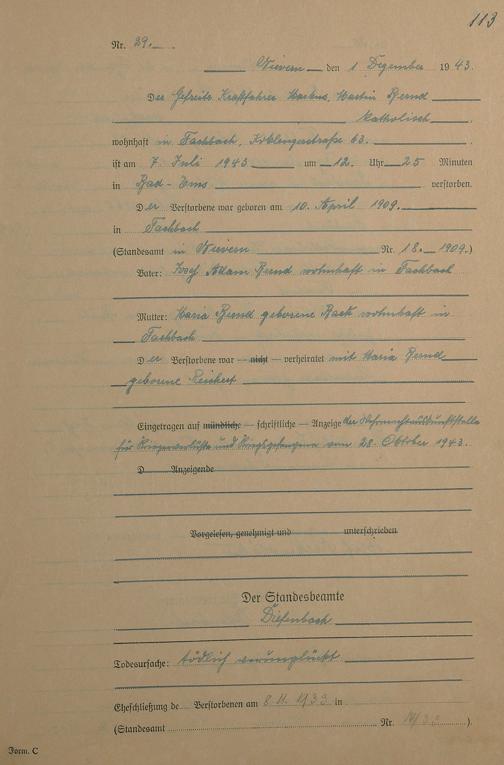 113
Nr. 29.
Nievern den 1 Dezember 1943.
Der Gefreite Kraftfahrer Markus, Martin Bernd
katholisch
wohnhaft in Fachbach, Koblenzerstraße 63.
ist am 7. Juli 1943 um 12. Uhr 25 Minuten
in Bad-Ems verstorben.
Der Verstorbene war geboren am 10. April 1909.
in Fachbach
(Standesamt in Nievern Nr. 18. 1909.)
Vater: Josef Adam Bernd wohnhaft in Fachbach
Mutter: Maria Bernd geborene wohnhaft in
Fachbach
Der Verstorbene war — nicht — verheiratet mit Maria Bernd
geborene Reichert
Eingetragen auf mündliche — schriftliche — Anzeige der Wehrmachtauskunftstelle
für Kriegerverluste und Kriegsgefangene vom 28. Oktober 1943.
D Anzeigende
Vorgelesen, genehmigt und unterschrieben
Der Standesbeamte
Diefenbach
Todesursache: tödlich verunglückt
Eheschließung de Verstorbenen am 8.11.1933 in
(Standesamt Nr. 14/33 ).
Form. C